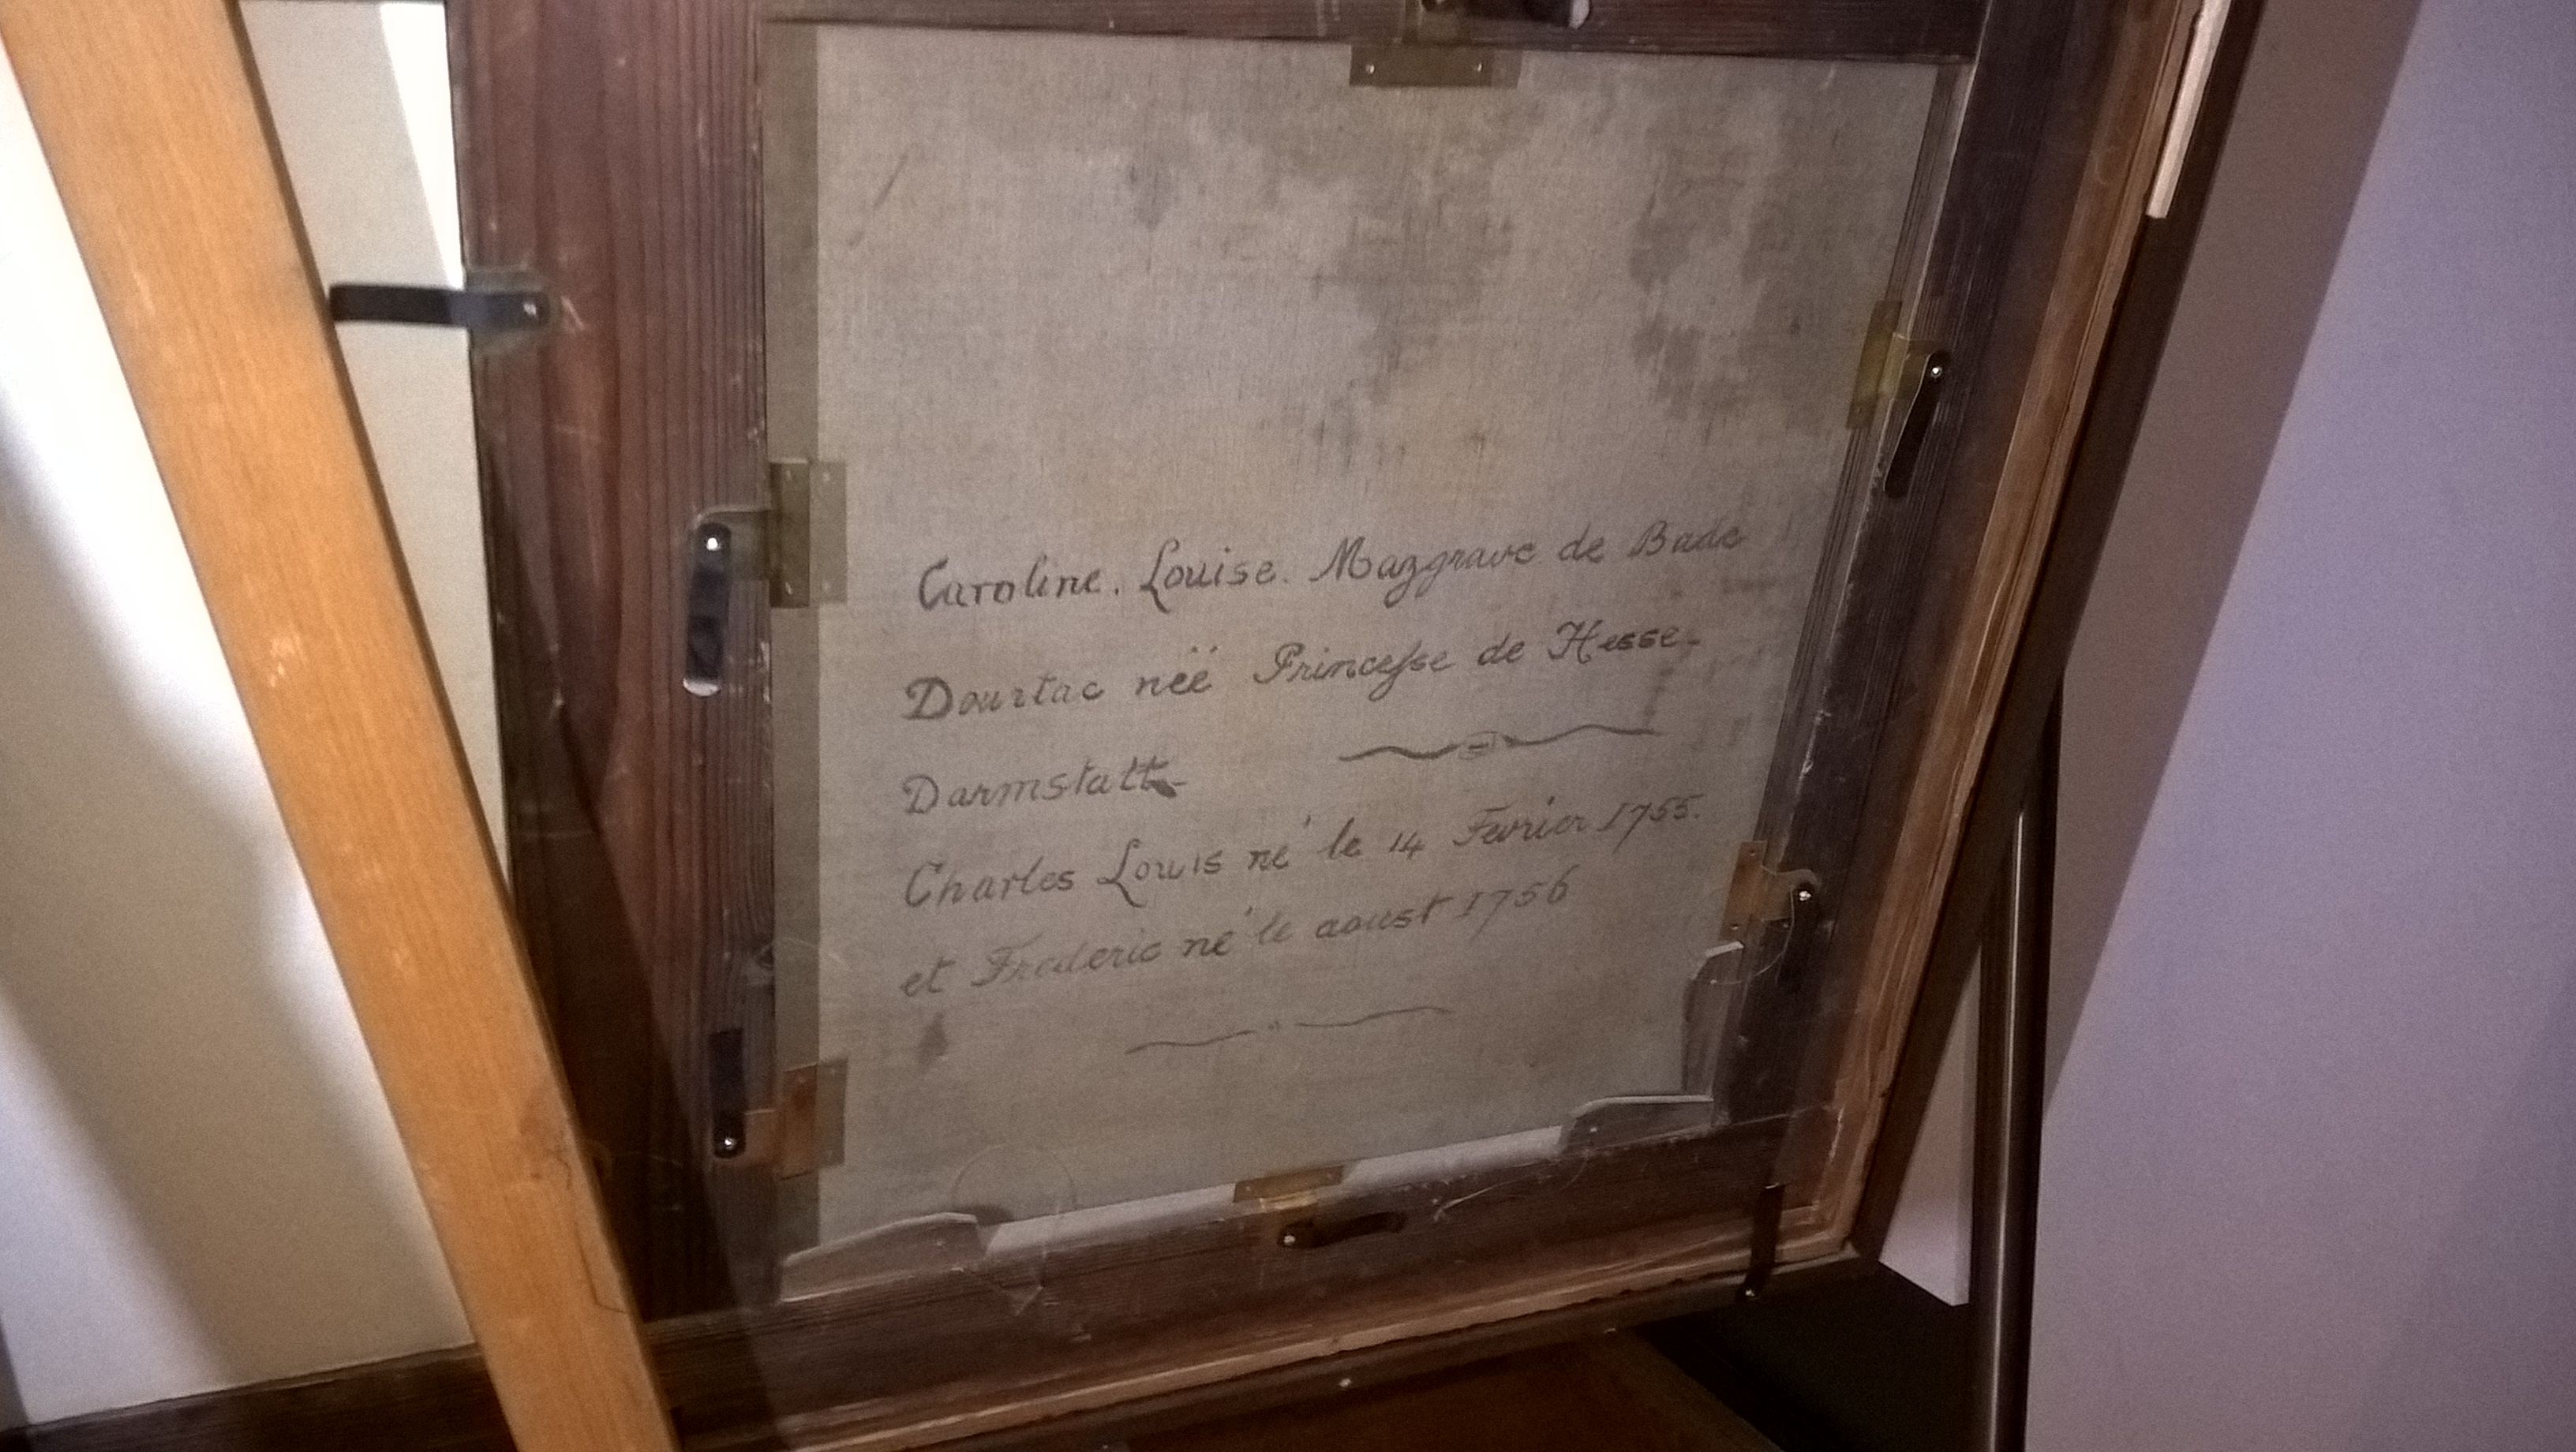 Caroline. Louise. Mazgrave de Bade
Dourlac néë Princesse de Hesse-
Darmstatt
Charles Louis né le 14 Fevrier 1755.
et Frederic né le aoust 1756